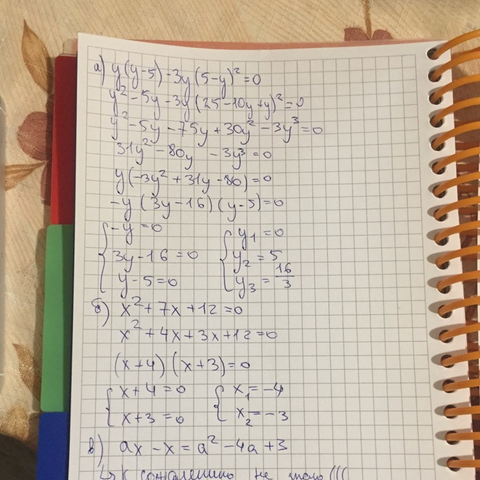 а) y(y-5)-3y(5-y)²=0
y²-5y-3y(25-10y+y²)=0
y²-5y-75y+30y²-3y³=0
31y²-80y-3y³=0
y(-3y²+31y-80)=0
-y(3y-16)(y-5)=0
{-y=0 {y₁=0
3y-16=0 y₂=5
y-5=0 y₃=16/3
б) x²+7x+12=0
x²+4x+3x+12=0
(x+4)(x+3)=0
{x+4=0 {x₁=-4
x+3=0 x₂=-3
в) ax-x=a²-4a+3
к сожалению не знаю(((